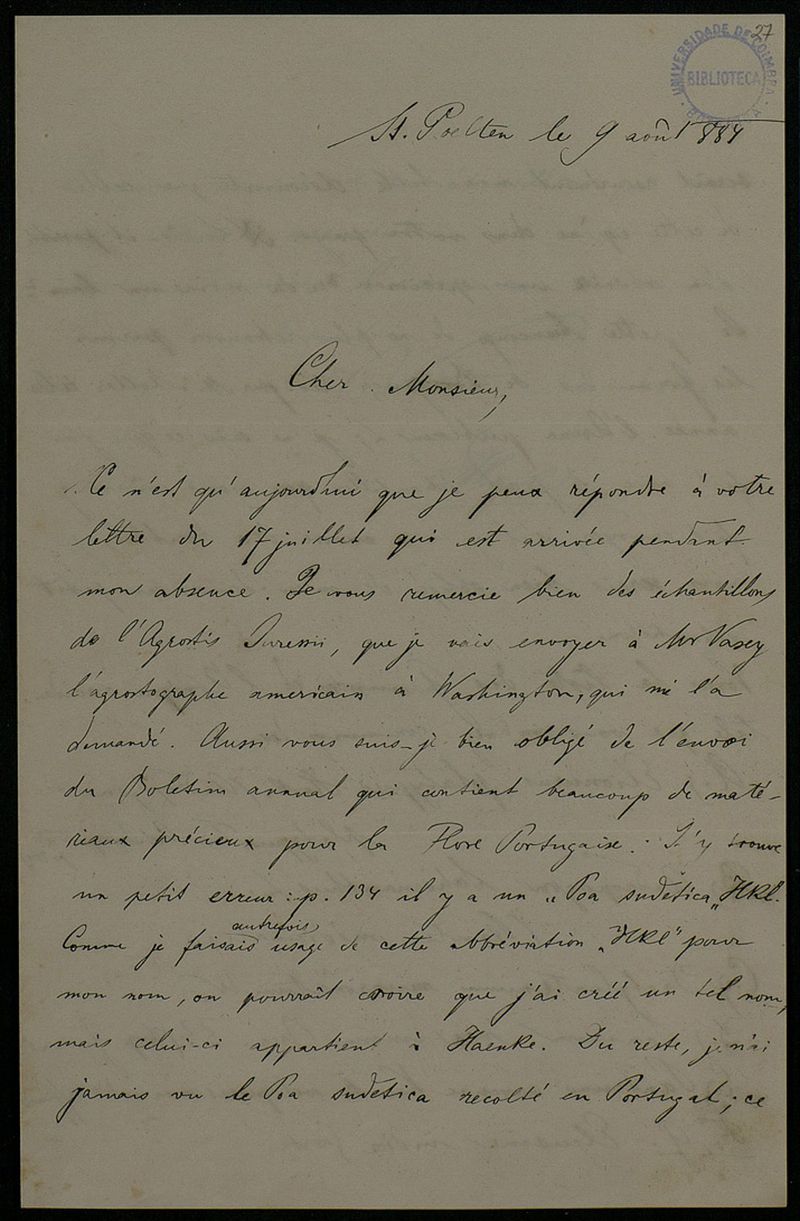 27
UNIVERSIDADE DE COIMBRA
BIBLIOTECA
St. Poelten le 9 août 1884
Cher Monsieur,
Ce n'est qu'aujourdhui que je peux répondre à votre
lettre du 17 juillet qui est arrivée pendant
mon absence. Je vous remercie bien des échantillons
de l'Agrostis Juressi, que je vais envoyer à Mr Vasey
l'agrostographe americain à Washington, qui me l'a
demandé. Aussi vous suis-je bien obligé de l'envoi
du Boletim annual qui contient beaucoup de maté-
riaux précieux pour la Flore Portugaise. J'y trouve
un petit erreur: p. 134 il y a un „Poa sudetica „Hkl".
Comme je faisais autrefois usage de cette abbréviation „Hkl" pour
mon nom, on pourrait croire que j'ai créé un tel nom,
mais celui-ci appartient à Haenke. Du reste, je n'ai
jamais vu le Poa sudetica recolté en Portugal; ce